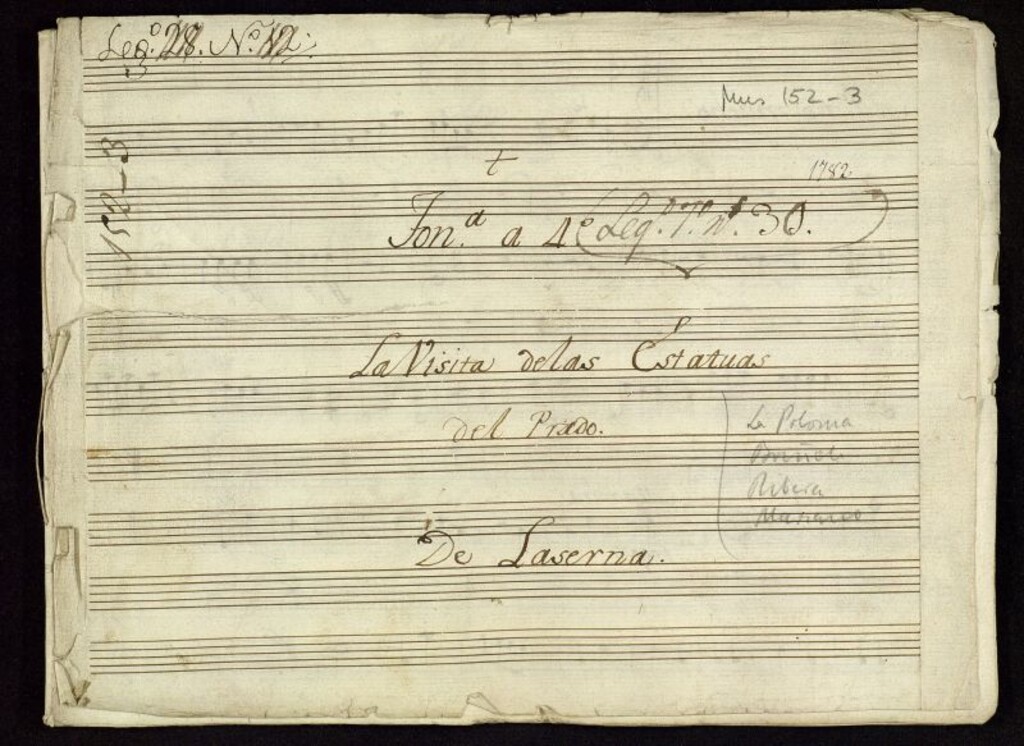 Leg.º 28. N.º 12.
3
Mus 152-3
152-3
t
1782.
Ton.ª a 4º (Leg.º 7.º n.º 30.)
La Visita de las Estatuas
del Prado.
La Paloma
Ribera
Mariano
De Laserna.